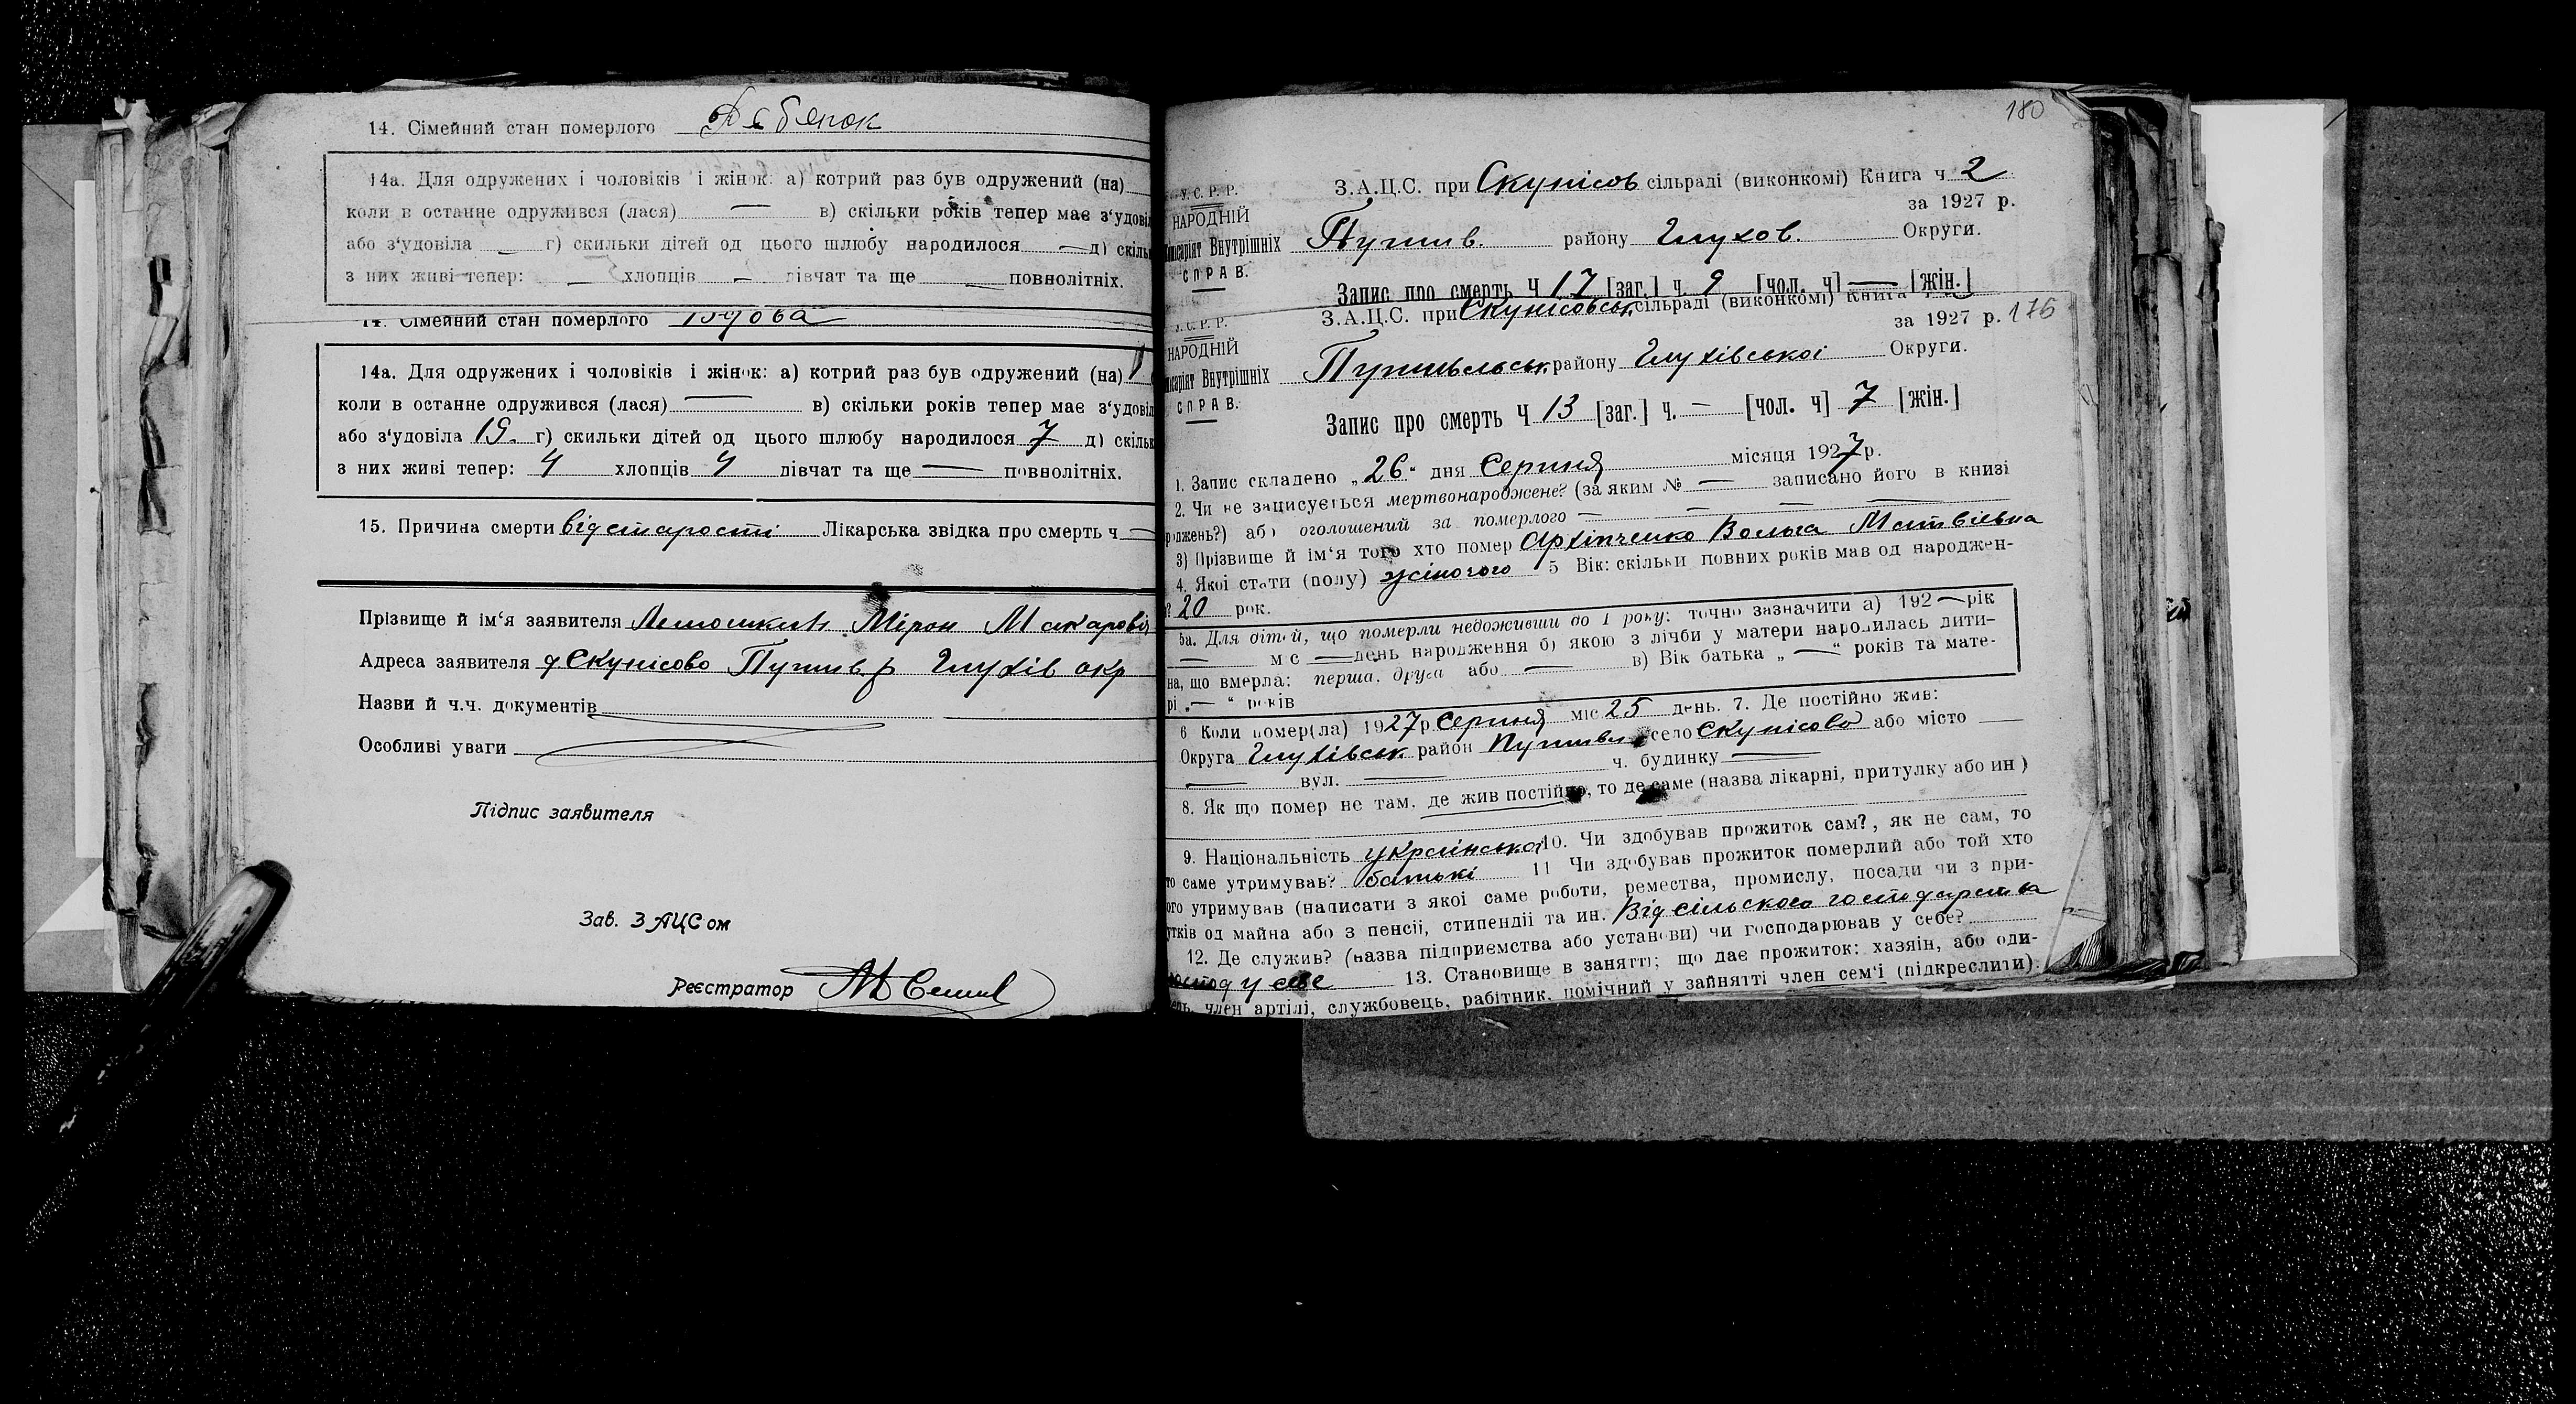 14. Сімейний стан померлого Рєбенок
14а. Для одружених і чоловіків і жінок: а) котрий раз був одружений (на)
коли в останне одружився (лася) — в) скільки років тепер має з‘удові
або з‘удовіла — г) скильки дітей од цього шлюбу народилося — д) скіль
з них живі тепер: — хлопців — дівчат та ще — повнолітніх.
14. Сімейний стан померлого Вдова
14а. Для одружених і чоловіків і жінок: а) котрий раз був одружений (на) 1
коли в останне одружився (лася) — в) скільки років тепер має з‘удові
або з‘удовіла 19. г) скильки дітей од цього шлюбу народилося 7 д) скільк
з них живі тепер: 4 хлопців 4 дівчат та ще — повнолітніх.
15. Причина смерти від старости Лікарська звідка про смерть ч —
Прізвище й ім‘я заявителя Мірон Макарові
Адреса заявителя Скунісово Путив. р Глухів окр
Назви й ч.ч. документів
Особливі уваги
Підпис заявителя
Зав. ЗАЦСом
Реєстратор
180
У.С.Р.Р.
НАРОДНІЙ
місаріят Внутрішніх
СПРАВ.
З.А.Ц.С. при Скунісов сільраді (виконкомі) Книга ч 2
за 1927 р.
Путив. району Глухов. Округи.
Запис про смерть Ч 17 [заг.] ч. 9 [чол. ч] — [жін.]
У.С.Р.Р.
НАРОДНІЙ
місаріят Внутрішніх
СПРАВ.
З.А.Ц.С. при Скунісовськ сільраді (виконкомі) Книга
за 1927 р. 176
Путивльськ. району Глухівської Округи.
Запис про смерть Ч 13 [заг.] ч. — [чол. ч] 7 [жін.]
1. Запис складено „26“ дня Серпня місяця 1927 р.
2. Чи не записується мертвонароджене? (за яким № — записано його в книзі
роджень?) або оголошений за померлого — — —
3) Прізвище й ім‘я того хто помер Архіпченко Вольга Матвієвна
4. Якої стати (полу) жіночого 5 Вік: скільки повних років мав од народжен-
? 20 рок.
5а. Для дітей, що померли недоживши до 1 року: точно зазначити а) 192 — рік
— м с — день народження б) якою з лічби у матери народилась дити-
на, що вмерла: перша, друга або — в) Вік батька „ — “ років та мате-
рі „ — “ років
6 Коли помер(ла) 1927 р Серпня міс 25 день. 7. Де постійно жив:
Округа Глухівськ район Путивл село Скунісово або місто —
— вул. — ч. будинку —
8. Як що помер не там, де жив постійно, то де саме (назва лікарні, притулку або ин )
9. Національність українська 10. Чи здобував прожиток сам?, як не сам, то
то саме утримував? батькі 11 Чи здобував прожиток померлий або той хто
ого утримував (написати з якої саме роботи, ремества, промислу, посади чи з при-
утків од майна або з пенсії, стипендії та ин. Від сільского господарства
12. Де служив? (назва підприємства або установи) чи господарював у себе?
господ у себе 13. Становище в занятті; що дає прожиток: хазяін, або оди-
ень, член артілі, службовець, рабітник, помічний у зайнятті член сем‘ї (підкреслити).